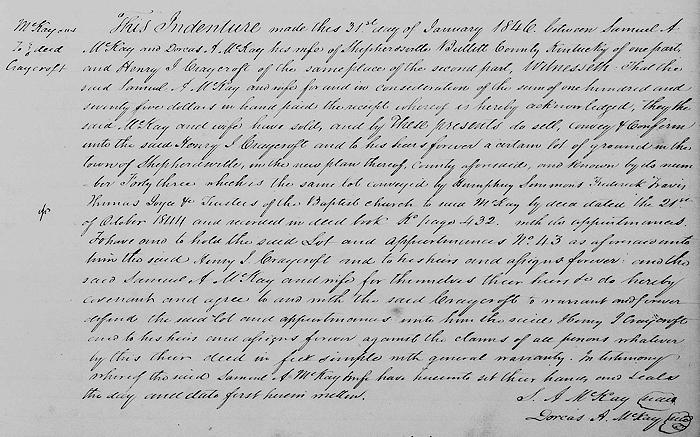 McKay ux
To } deed
Craycroft
This Indenture made this 31st day of January 1846 between Samuel A
McKay and Dorcas A. McKay his wife of Shephersville Bullett County Kentucky of one part,
and Henry I Craycroft of the same place of the second part, Witnesseth That the
said Samuel A McKay and wife for and in consideration of the sum of one hundred and
seventy five dollars in hand paid the receipt whereof is hereby acknowledged, they the
said McKay and wife have sold, and by These presents do sell, convey & Confirm
unto the said Henry I Craycroft and to his heirs forever a certain lot of ground in the
town of Shepherdsville, in the new plan thereof, county aforesaid, and Known by its num
ber Forty three which is the same lot conveyed by Humphrey Simmons Frederick Travis
Thomas Joyce & Trustees of the Baptist church to said McKay by deed dated the 21st
of October 1844 and recorded in deed book page 432. with its appurtenances.
To have and to hold the said Lot and appurtenances No 43 as aforesaid unto
him the said Henry I Craycroft and to his heirs and assigns forever: and the
said Samuel A McKay and wife for themselves their heirs &c do hereby
covenant and agree to and with the said Craycroft to warrant and forever
defend the said lot and appurtenances unto him the said Henry I Craycroft
and to his heirs and assigns forever against the claims of all persons whatever
by this their deed in fee simple with general warranty. In testimony
whereof the said Samuel A McKay & wife have hereunto set their hands and seals
the day and date first herein written.
S. A McKay (seal)
Dorcas A. McKay (seal)